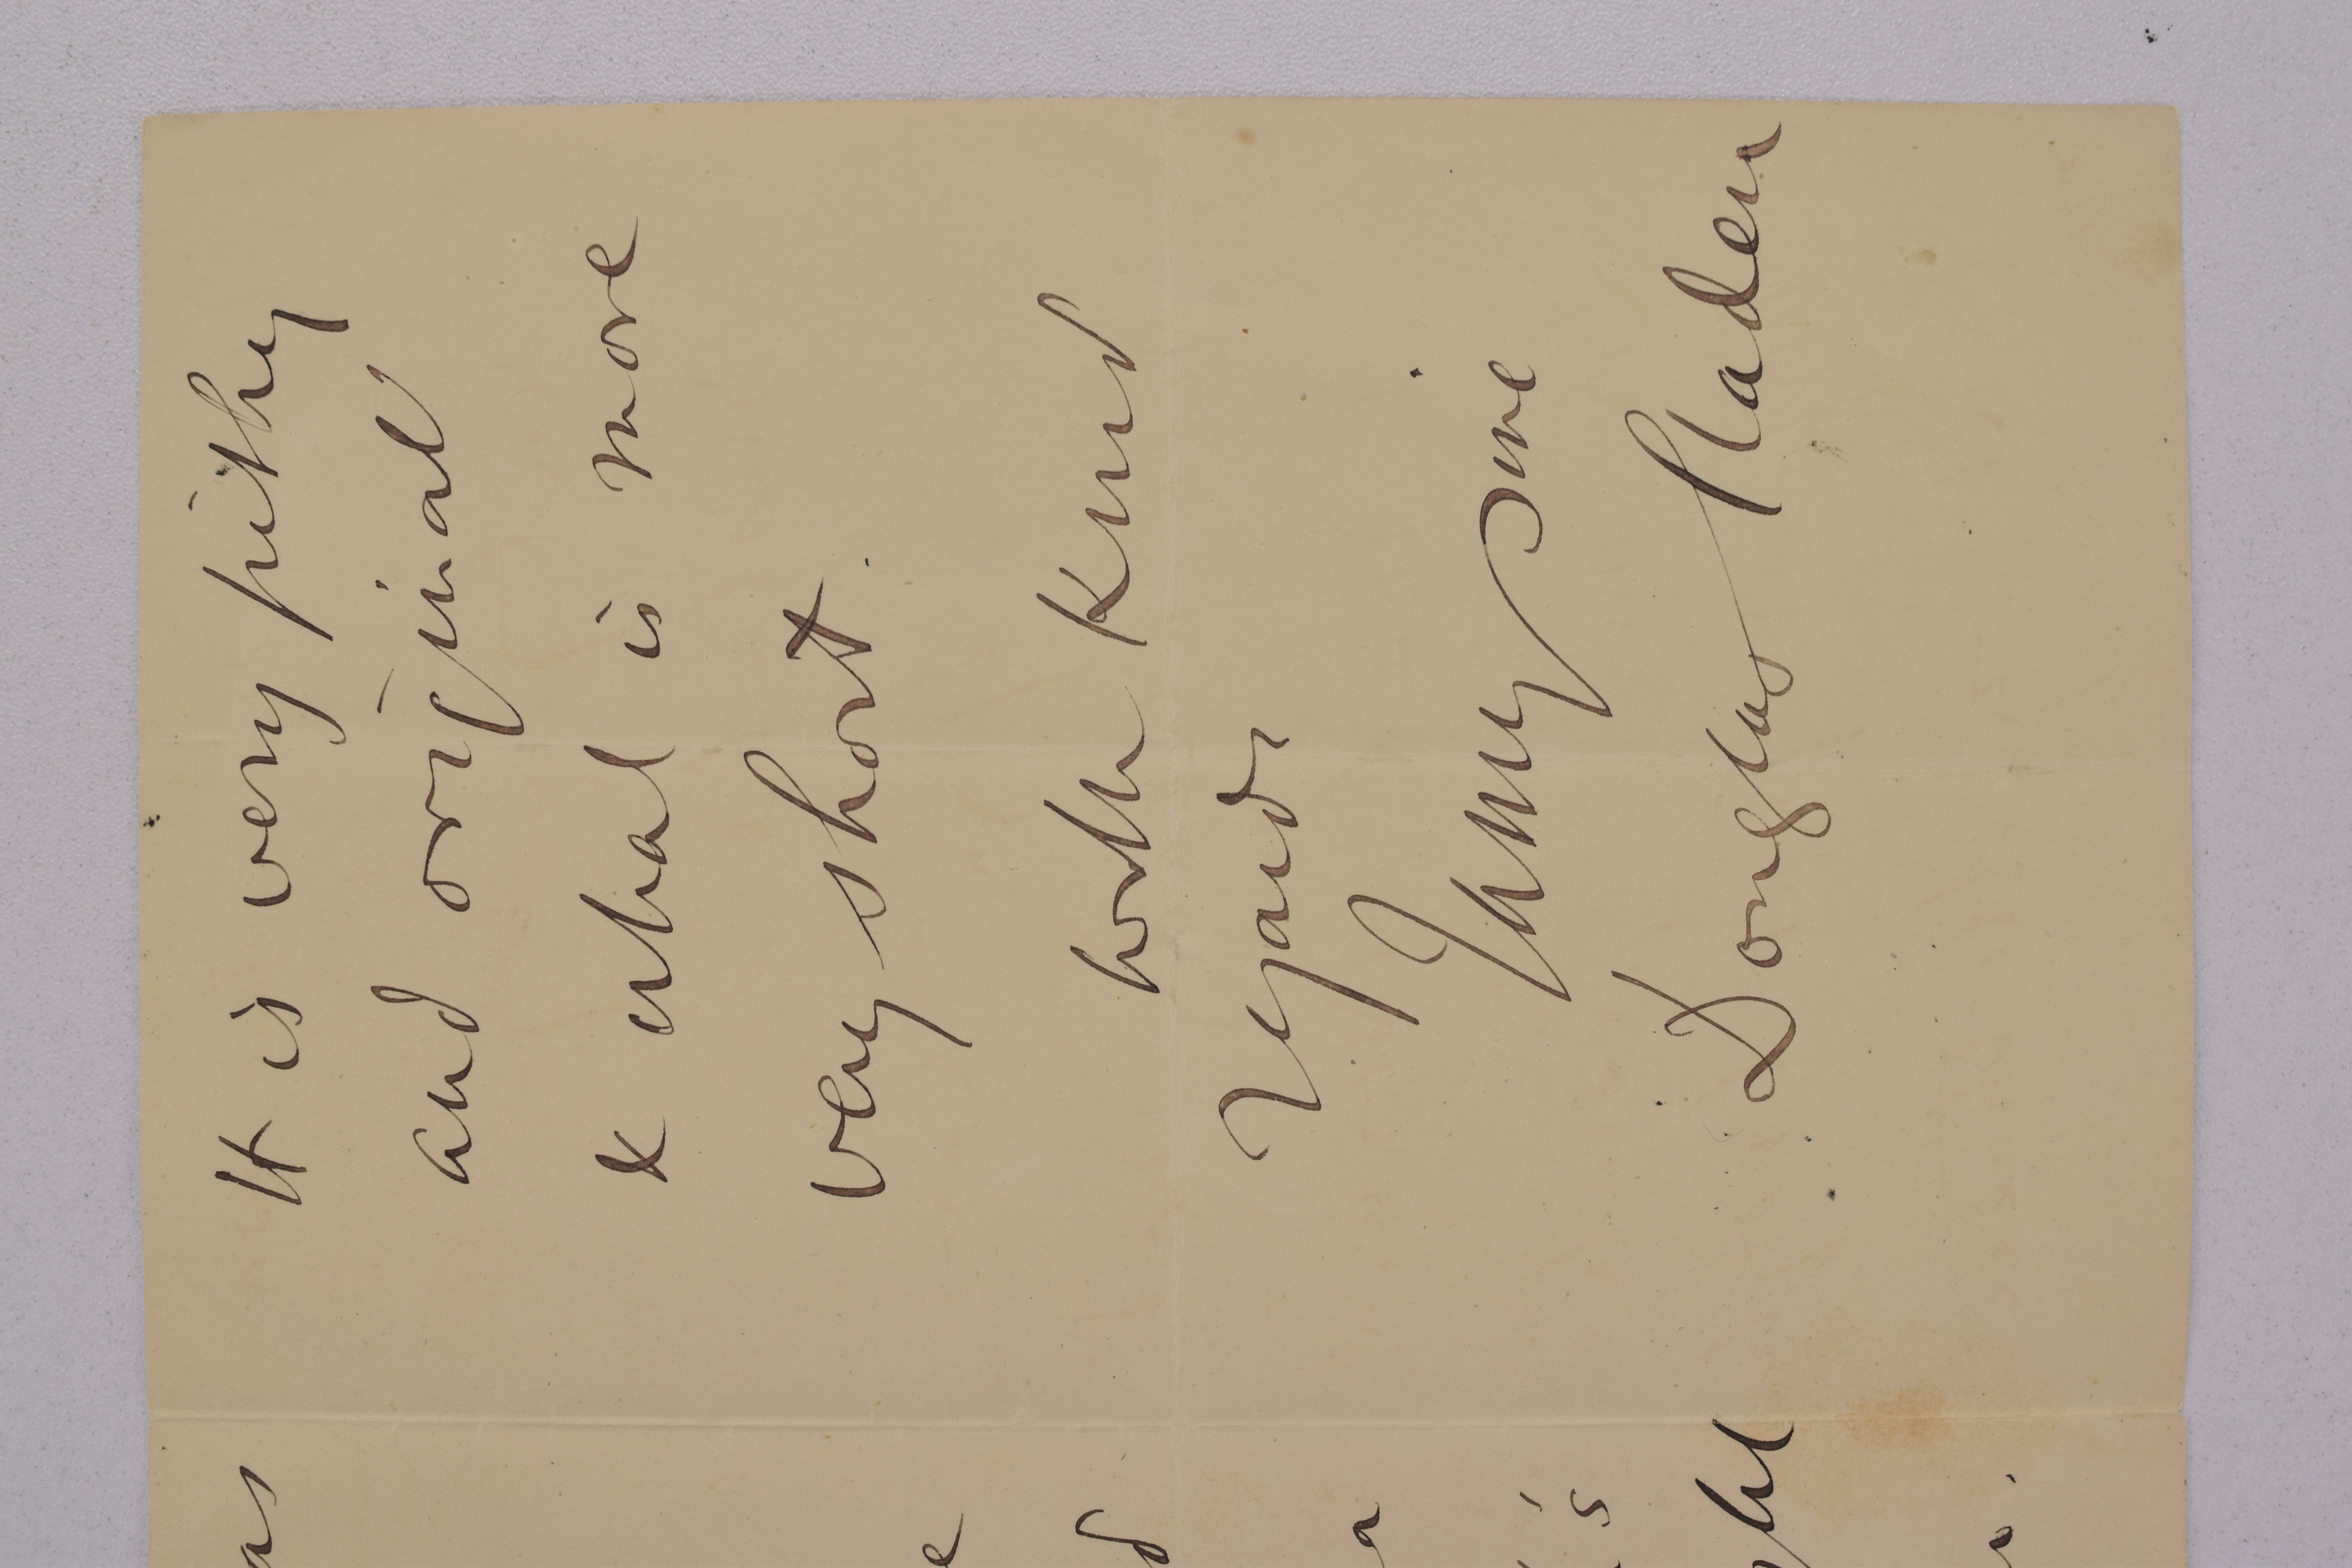 It is very pithy
and original
& what is more
very short.
with kind
regards
Yours sinc
Douglas Sladen
as
e
d
a
's